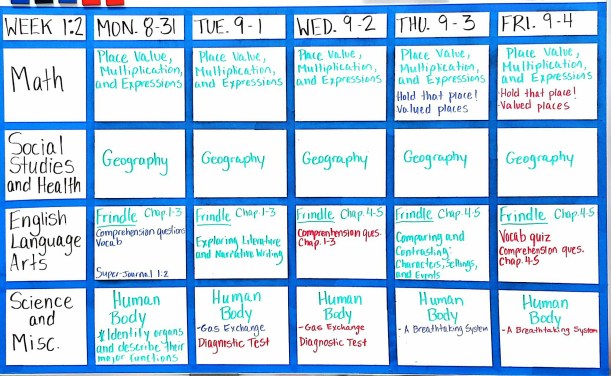 WEEK 1:2
MON. 8-31
TUE. 9-1
WED. 9-2
THU. 9-3
FRI. 9-4
Math
Place Value,
Multiplication,
and Expressions
Place Value,
Multiplication,
and Expressions
Place Value,
Multiplication,
and Expressions
Place Value,
Multiplication,
and Expressions
Hold that place!
Valued places
Place Value,
Multiplication,
and Expressions
Hold that place!
Valued places
Social
Studies
and Health
Geography
Geography
Geography
Geography
Geography
English
Language
Arts
Frindle Chap. 1-3
Comprehension questions
Vocab
Super-Journal 1:2
Frindle Chap. 1-3
Exploring Literature
and Narrative Writing
Frindle Chap. 4-5
Comprenhension ques.
Chap. 1-3
Frindle Chap. 4-5
Comparing and
Contrasting:
Characters, Settings,
and Events
Frindle Chap. 4-5
Vocab quiz
Comprehension ques.
Chap. 4-5
Science
and
Misc.
Human
Body
*Identify organs
and describe their
major functions
Human
Body
-Gas Exchange
Diagnostic Test
Human
Body
-Gas Exchange
Diagnostic Test
Human
Body
-A Breathtaking System
Human
Body
-A Breathtaking System